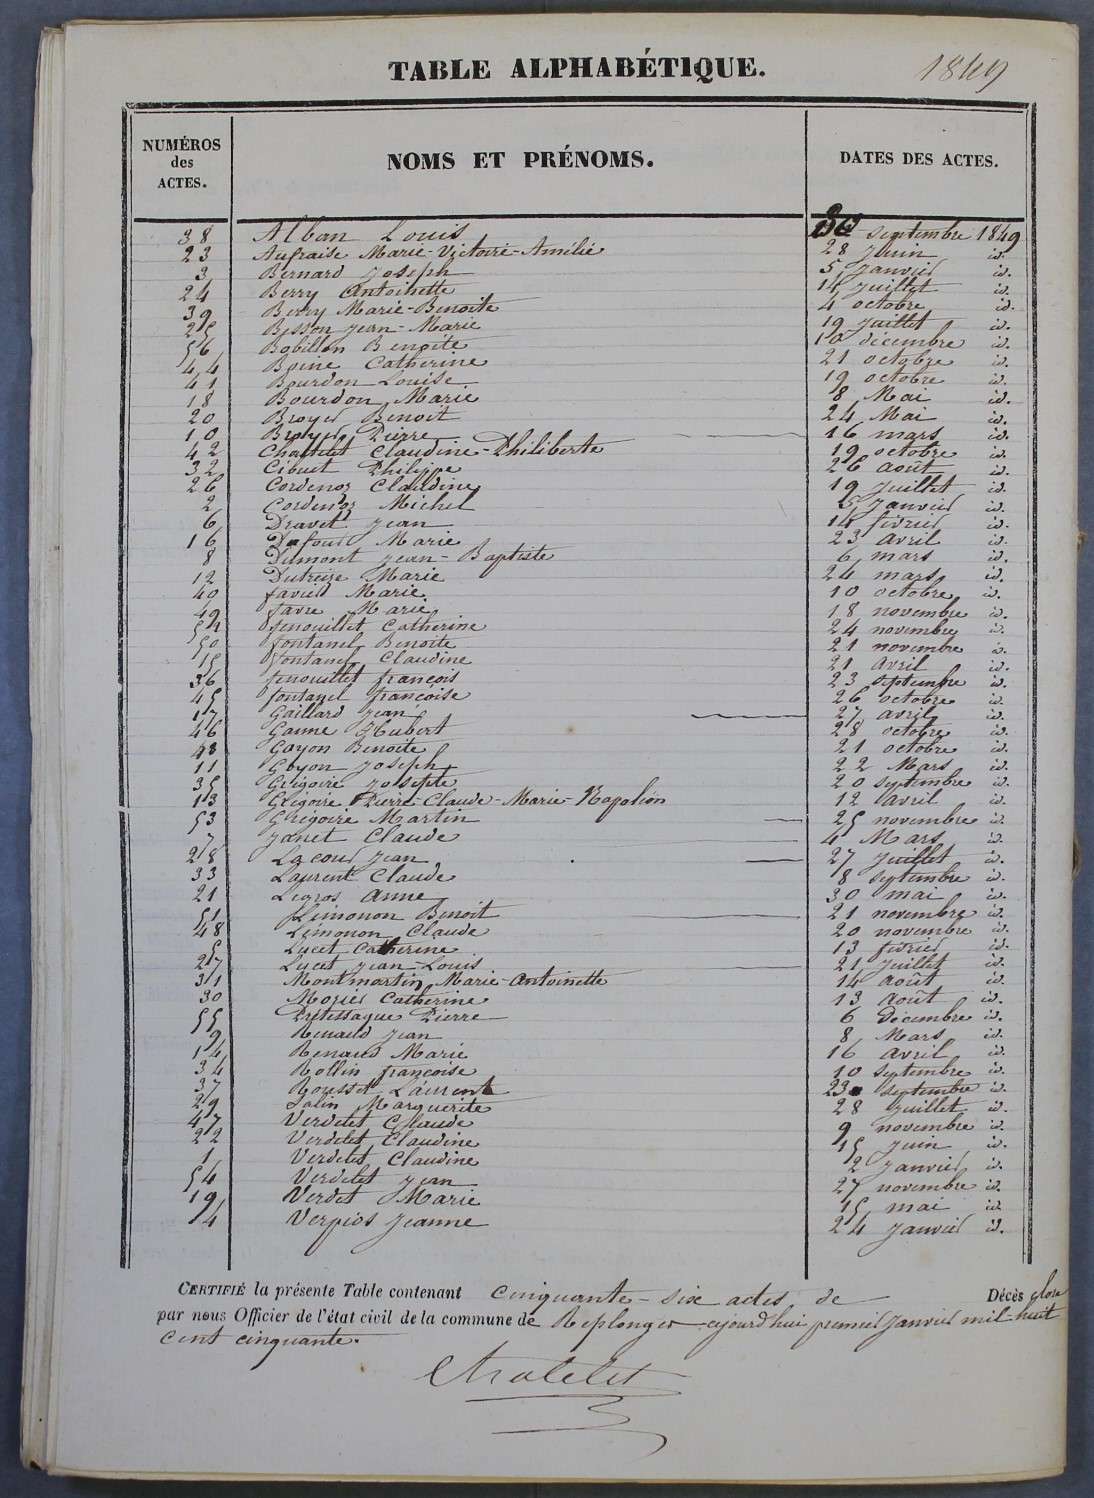 TABLE ALPHABÉTIQUE. 1849
NUMÉROS des ACTES. NOMS ET PRÉNOMS. DATES DES ACTES.
38 Alban Louis 30 septembre 1849
23 Aufraise Marie-Victoire-Amélie 28 Juin id.
3 Bernard Joseph 5 Janvier id.
24 Berry Antoinette 14 Juillet id.
39 Berry Marie-Benoite 4 octobre id.
25 Besson Jean-Marie 19 Juillet id.
56 Bobillon Benoite 10 décembre id.
44 Boine Catherine 21 octobre id.
41 Bourdon Louise 19 octobre id.
18 Bourdon Marie 8 Mai id.
20 Broyer Benoit 24 Mai id.
10 Broyer Pierre 16 mars id.
42 Chatelet Claudine-Philiberte 19 octobre id.
32 Cibuet Philippe 26 août id.
26 Cordenoz Claudine 19 Juillet id.
2 Cordenoz Michel 5 Janvier id.
6 Dravet Jean 14 février id.
16 Dufour Marie 23 avril id.
8 Dumont Jean-Baptiste 6 mars id.
12 Dutreize Marie 24 mars id.
40 favier Marie 10 octobre id.
49 favre Marie 18 novembre id.
52 fenouillet Catherine 24 novembre id.
50 fontanel Benoite 21 novembre id.
15 fontanel Claudine 21 avril id.
36 fenouillet françois 23 septembre id.
45 fontanel françoise 26 octobre id.
17 Gaillard Jean 27 avril id.
46 Ganne Hubert 28 octobre id.
43 Goyon Benoite 21 octobre id.
11 Goyon Joseph 22 Mars id.
35 Grégoire Josephte 20 septembre id.
13 Grégoire Pierre-Claude-Marie-Napoléon 12 avril id.
53 Grégoire Martin 25 novembre id.
7 Janet Claude 4 Mars id.
28 Lacour Jean 27 Juillet id.
33 Laurent Claude 8 septembre id.
21 Legros Anne 30 mai id.
51 Limonon Benoit 21 novembre id.
48 Limonon Claude 20 novembre id.
5 Lucet Catherine 13 février id.
27 Lucet Jean-Louis 21 Juillet id.
31 Montmartin Marie-Antoinette 14 août id.
30 Morier Catherine 13 août id.
55 Prétessaque Pierre 6 Décembre id.
9 Renaud Jean 8 Mars id.
14 Renaud Marie 16 avril id.
34 Rollin françoise 10 septembre id.
37 Rousset Laurent 23 septembre id.
29 Salin Marguerite 28 Juillet id.
47 Verdelet Claude 9 novembre id.
22 Verdelet Claudine 15 Juin id.
1 Verdelet Claudine 2 Janvier id.
54 Verdelet Jean 27 novembre id.
19 Verdet Marie 15 mai id.
4 Verpios Jeanne 24 Janvier id.
CERTIFIÉ la présente Table contenant cinquante-six actes de Décès close
par nous Officier de l'état civil de la commune de Replonges aujourd'hui premier janvier mil huit
cent cinquante.
Chatelet